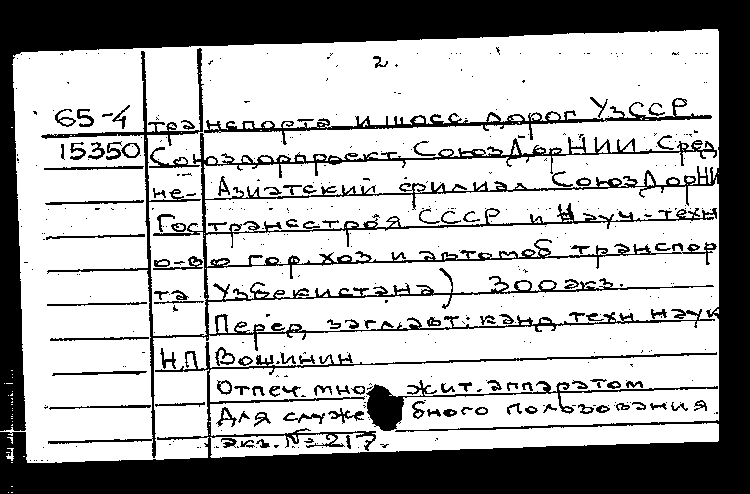 2.
65-4 транспорта и шосс. дорог УзССР.
15350 Союздорпроект, СоюзДорНИИ Сред
не-Азиатский филиал СоюзДорНИ
Госстрансстроя СССР и Науч.-техн
о-во гор. хоз. и автомоб транспор
та Узбекистана) 300 экз.
Перед загл. авт: канд. техн наук
Н.П Вощинин.
Отпеч. множит. аппаратом
Для служебного пользования
экз. № 217.